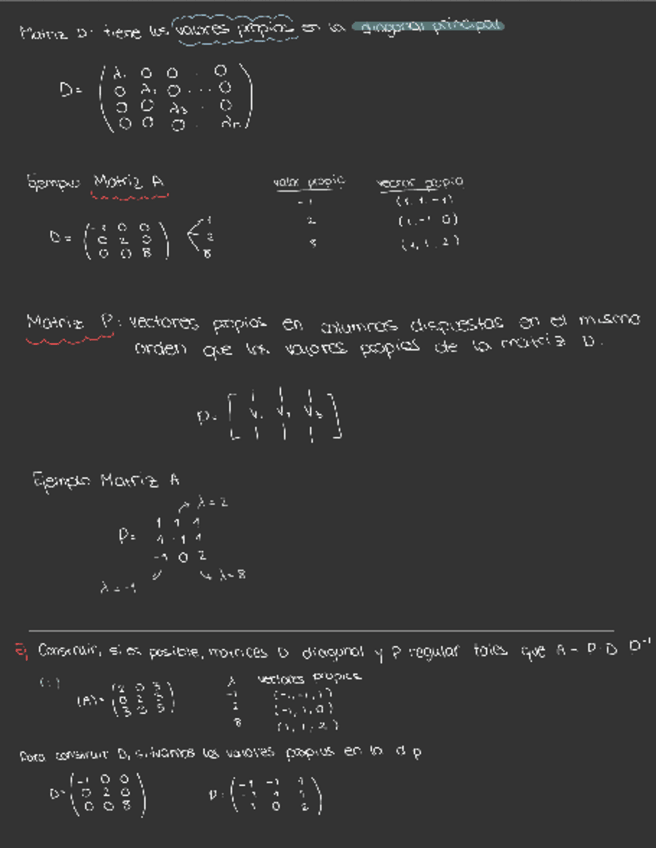 Matriz D: tiene los valores propios en la diagonal principal
D= ( λ₁ 0 0 . 0
0 λ₂ 0 ... 0
0 0 λ₃ . 0
0 0 0 . λn )
Ejemplo Matriz A
valor propio vector propio
-1 (1, 1, -1)
2 (1, -1, 0)
8 (1, 1, 2)
D= ( -1 0 0
0 2 0
0 0 8 )
-1
2
8
Matriz P: vectores propios en columnas dispuestas en el mismo
orden que los valores propios de la matriz D.
P= [ V₁ V₂ V₃ ]
Ejemplo Matriz A
λ=2
P= 1 1 1
1 -1 1
-1 0 2
λ=-1 λ=8
Ej Construir, si es posible, matrices D diagonal y P regular tales que A = P·D·P⁻¹
(A)= ( 2 0 3
0 2 3
3 3 5 )
λ vectores propios
-1 (-1, -1, 1)
2 (-1, 1, 0)
8 (1, 1, 2)
Para construir D, situamos los valores propios en la d p
D= ( -1 0 0
0 2 0
0 0 8 )
P: ( -1 -1 1
-1 1 1
1 0 2 )